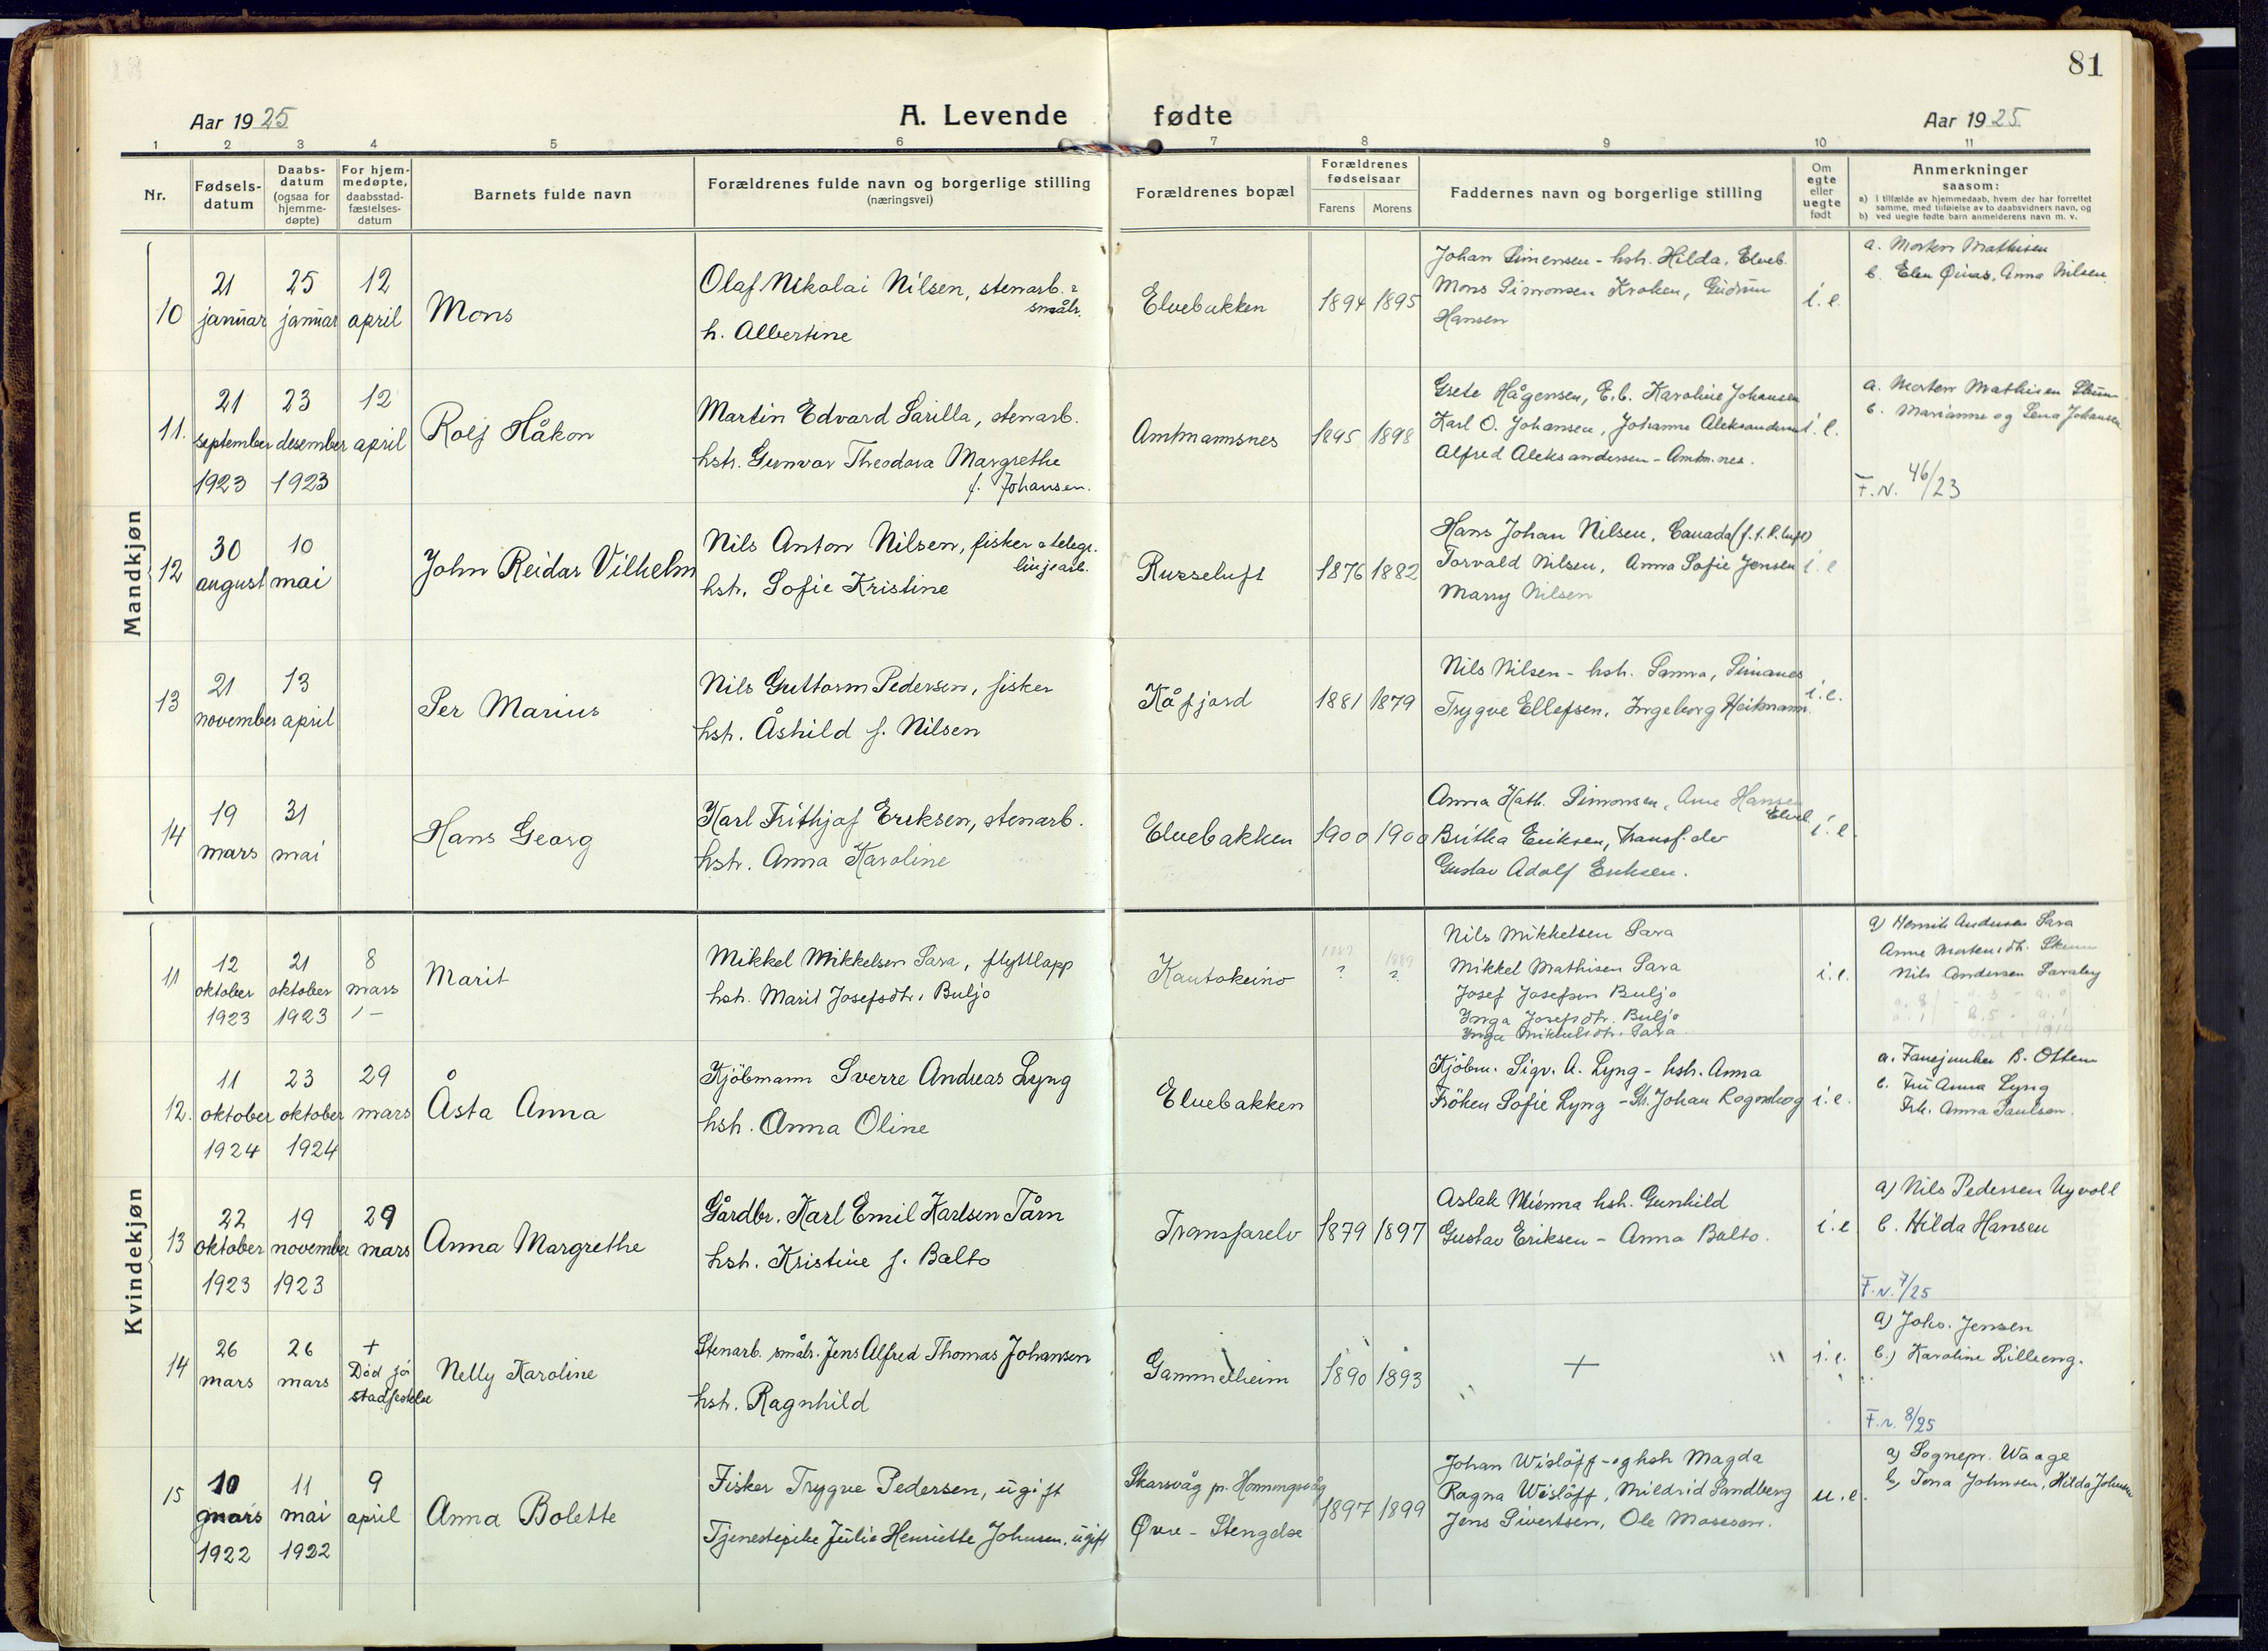 81
Aar 1925
A. Levende fødte
Aar 1925
1 2 3 4 5 6 7 8 9 10 11
Nr.
Fødsels-
datum
Daabs-
datum
(ogsaa for
hjemme-
døpte)
For hjem-
medøpte,
daabsstad-
fæstelses-
datum
Barnets fulde navn
Forældrenes fulde navn og borgerlige stilling
(næringsvei)
Forældrenes bopæl
Forældrenes
fødselsaar
Farens Morens
Faddernes navn og borgerlige stilling
Om
egte
eller
uegte
født
Anmerkninger
saasom:
a) i tilfælde av hjemmedaab, hvem der har forrettet
samme, med tilføielse av to daabsvidners navn, og
b) ved uegte fødte barn anmelderens navn m. v.
Mandkjøn
10
21
januar
25
januar
12
april
Mons
Olaf Nikolai Nilsen, stenarb.
småbr.
h. Albertine
Elvebakken
1894 1895
Johan Simensen - hstr. Hilda, Elveb.
Mons Simonsen Kroken, Gudrun
Hansen
i. e.
a. Morten Mathisen
b. Elen Anna Nilsen
11.
21
september
1923
23
desember
1923
12
april
Rolf Håkon
Martin Edvard Sarilla, stenarb.
hstr. Gunvor Theodora Margrethe
f. Johansen.
Amtmannsnes
1895 1898
Grete Hågensen, E.b. Karoline Johansen
Karl O. Johansen, Johanne Aleksandersen
Alfred Aleksandersen - Amtm.nes.
i. e.
a. Morten Mathisen
b. Marianne og Lena Johansen
F. N. 46/23
12
30
august
10
mai
John Reidar Vilhelm
Nils Anton Nilsen, fisker o telegr.
linjearb.
hstr. Sofie Kristine
Russeluft
1876 1882
Hans Johan Nilsen, Canada
Torvald Nilsen, Anna Sofie Jensen
Marry Nilsen
i. e
13
21
november
13
april
Per Marius
Nils Guttorm Pedersen, fisker
hstr. Åshild f. Nilsen
Kåfjord
1881 1879
Nils Nilsen - hstr. Sanna, Simanes
Trygve Ellefsen, Ingeborg Heitmann.
i. e.
14
19
mars
31
mai
Hans Georg
Karl Frithjof Eriksen, stenarb.
hstr. Anna Karoline
Elvebakken
1900 1900
Anna Kath. Simonsen, Ane Hansen
Elveb.
Britha Eriksen, Transf.elv
Gustav Adolf Eriksen.
i. e
Kvindekjøn
11
12
oktober
1923
21
oktober
1923
8
mars
Marit
Mikkel Mikkelsen Sara, flyttlapp
hstr. Marit Josefsdtr. Buljo
Kautokeino
? ?
Nils Mikkelsen Sara
Mikkel Mathisen Sara
Josef Josefsen Buljo
Inga Josefsdtr. Buljo
Inga Mikkelsdtr. Sara
i. e.
a) Henrik Andersen Sara
Anne Mortensdtr.
Nils Andersen
12.
11
oktober
1924
23
oktober
1924
29
mars
Åsta Anna
Kjöbmann Sverre Andreas Lyng
hstr. Anna Oline
Elvebakken
Kjöbm. Sigv. A. Lyng - hstr. Anna
Fröken Sofie Lyng - Johan
i. e.
a. Fanejunker B. Ottem
b. Fru Anna Lyng
Frk. Anna Paulsen.
13
22
oktober
1923
19
november
1923
29
mars
Anna Margrethe
Gårdbr. Karl Emil Karlsen Tårn
hstr. Kristine f. Balto
Transfarelv
1879 1897
Aslak Mienna hstr. Gunhild
Gustav Eriksen - Anna Balto.
i. e
a) Nils Pedersen Nyvoll
b. Hilda Hansen
F. N. 7/25
14
26
mars
26
mars
+
Död før
stadfestelse
Nelly Karoline
Stenarb. småbr. Jens Alfred Thomas Johansen
hstr. Ragnhild
Gammelheim
1890 1893
+
i. e.
a) Johs. Jensen
b.) Karoline Lilleeng.
F. n. 8/25
15
10
mars
1922
11
mai
1922
9
april
Anna Bolette
Fisker Trygve Pedersen, ugift
Tjenestepike Julie Henriette Johnsen, ugift
Skarsvåg pr. Honningsvåg
Øvre - Stengelse
1897 1899
Johan Wislöff - og hstr Magda
Ragna Wislöff, Mildrid Sandberg
Jens Sivertsen, Ole Mosesen.
u. e.
a) Sognepr. Waage
b) Johnsen, Hilda Johnsen